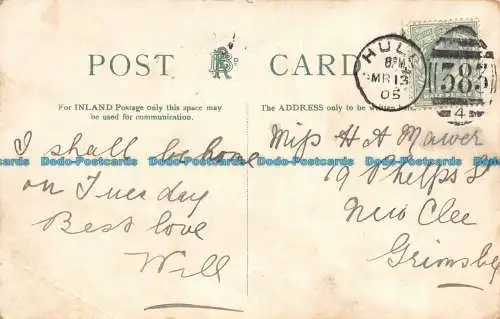 POST CARD
For INLAND Postage only this space may
be used for communication.
The ADDRESS only to be written
HULL
8PM
MR 13
05
383
4
I shall be home
on Tuesday
Best love
Will
Miss H A Mawer
19 Phelps St
New Clee
Grimsby
Dodo-Postcards Dodo-Postcards Dodo-Postcards Dodo-Postcards Dodo-Postcards